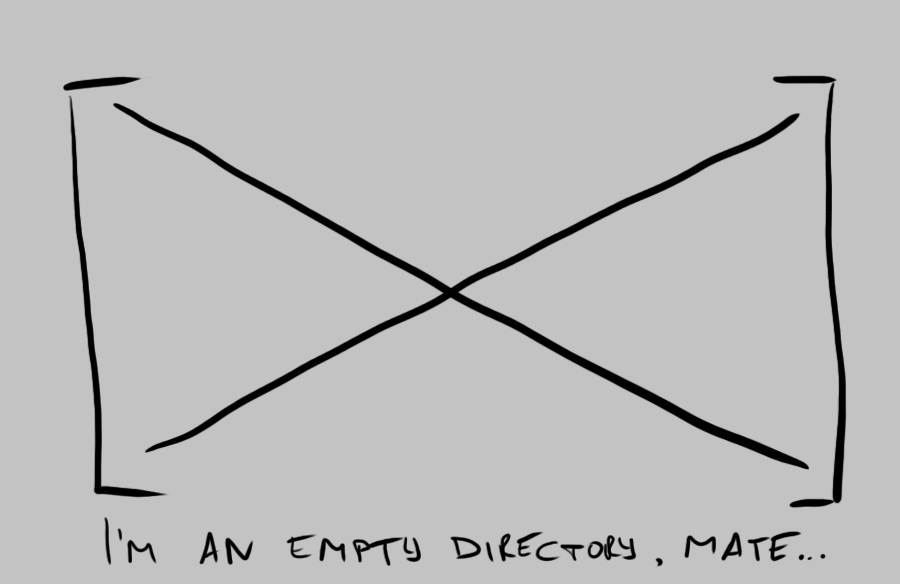 I'M AN EMPTY DIRECTORY, MATE...